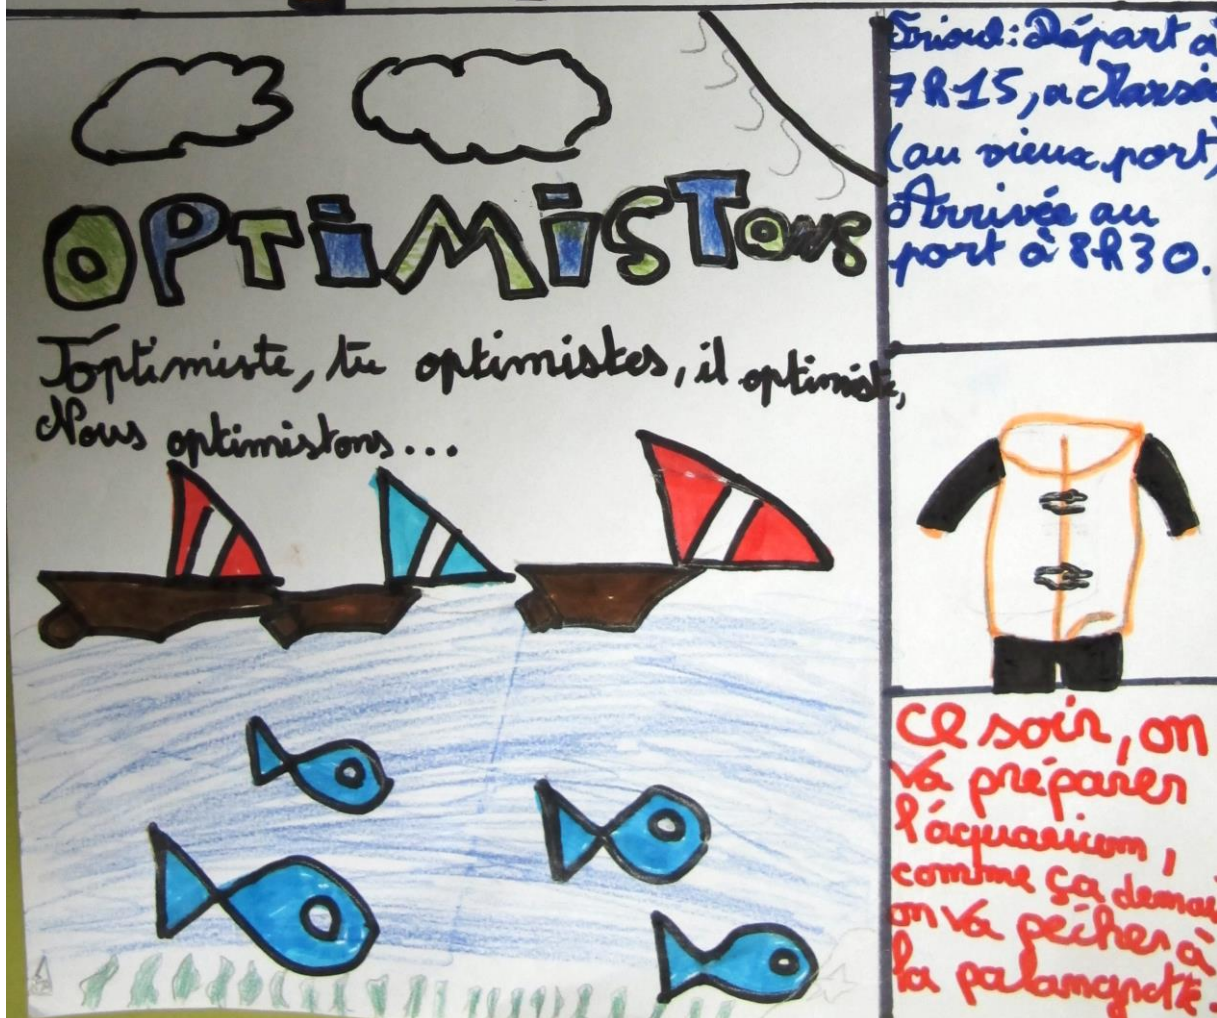 OPTiMiSTons
J'optimiste, tu optimistes, il optimiste,
Nous optimistons...
Frioul: Départ à
7h15, a Marse
(au vieux port)
Arrivée au
port à 8h30.
Ce soir, on
va préparer
l'aquarium,
comme ça demai
on va pêcher à
la palangrotte.